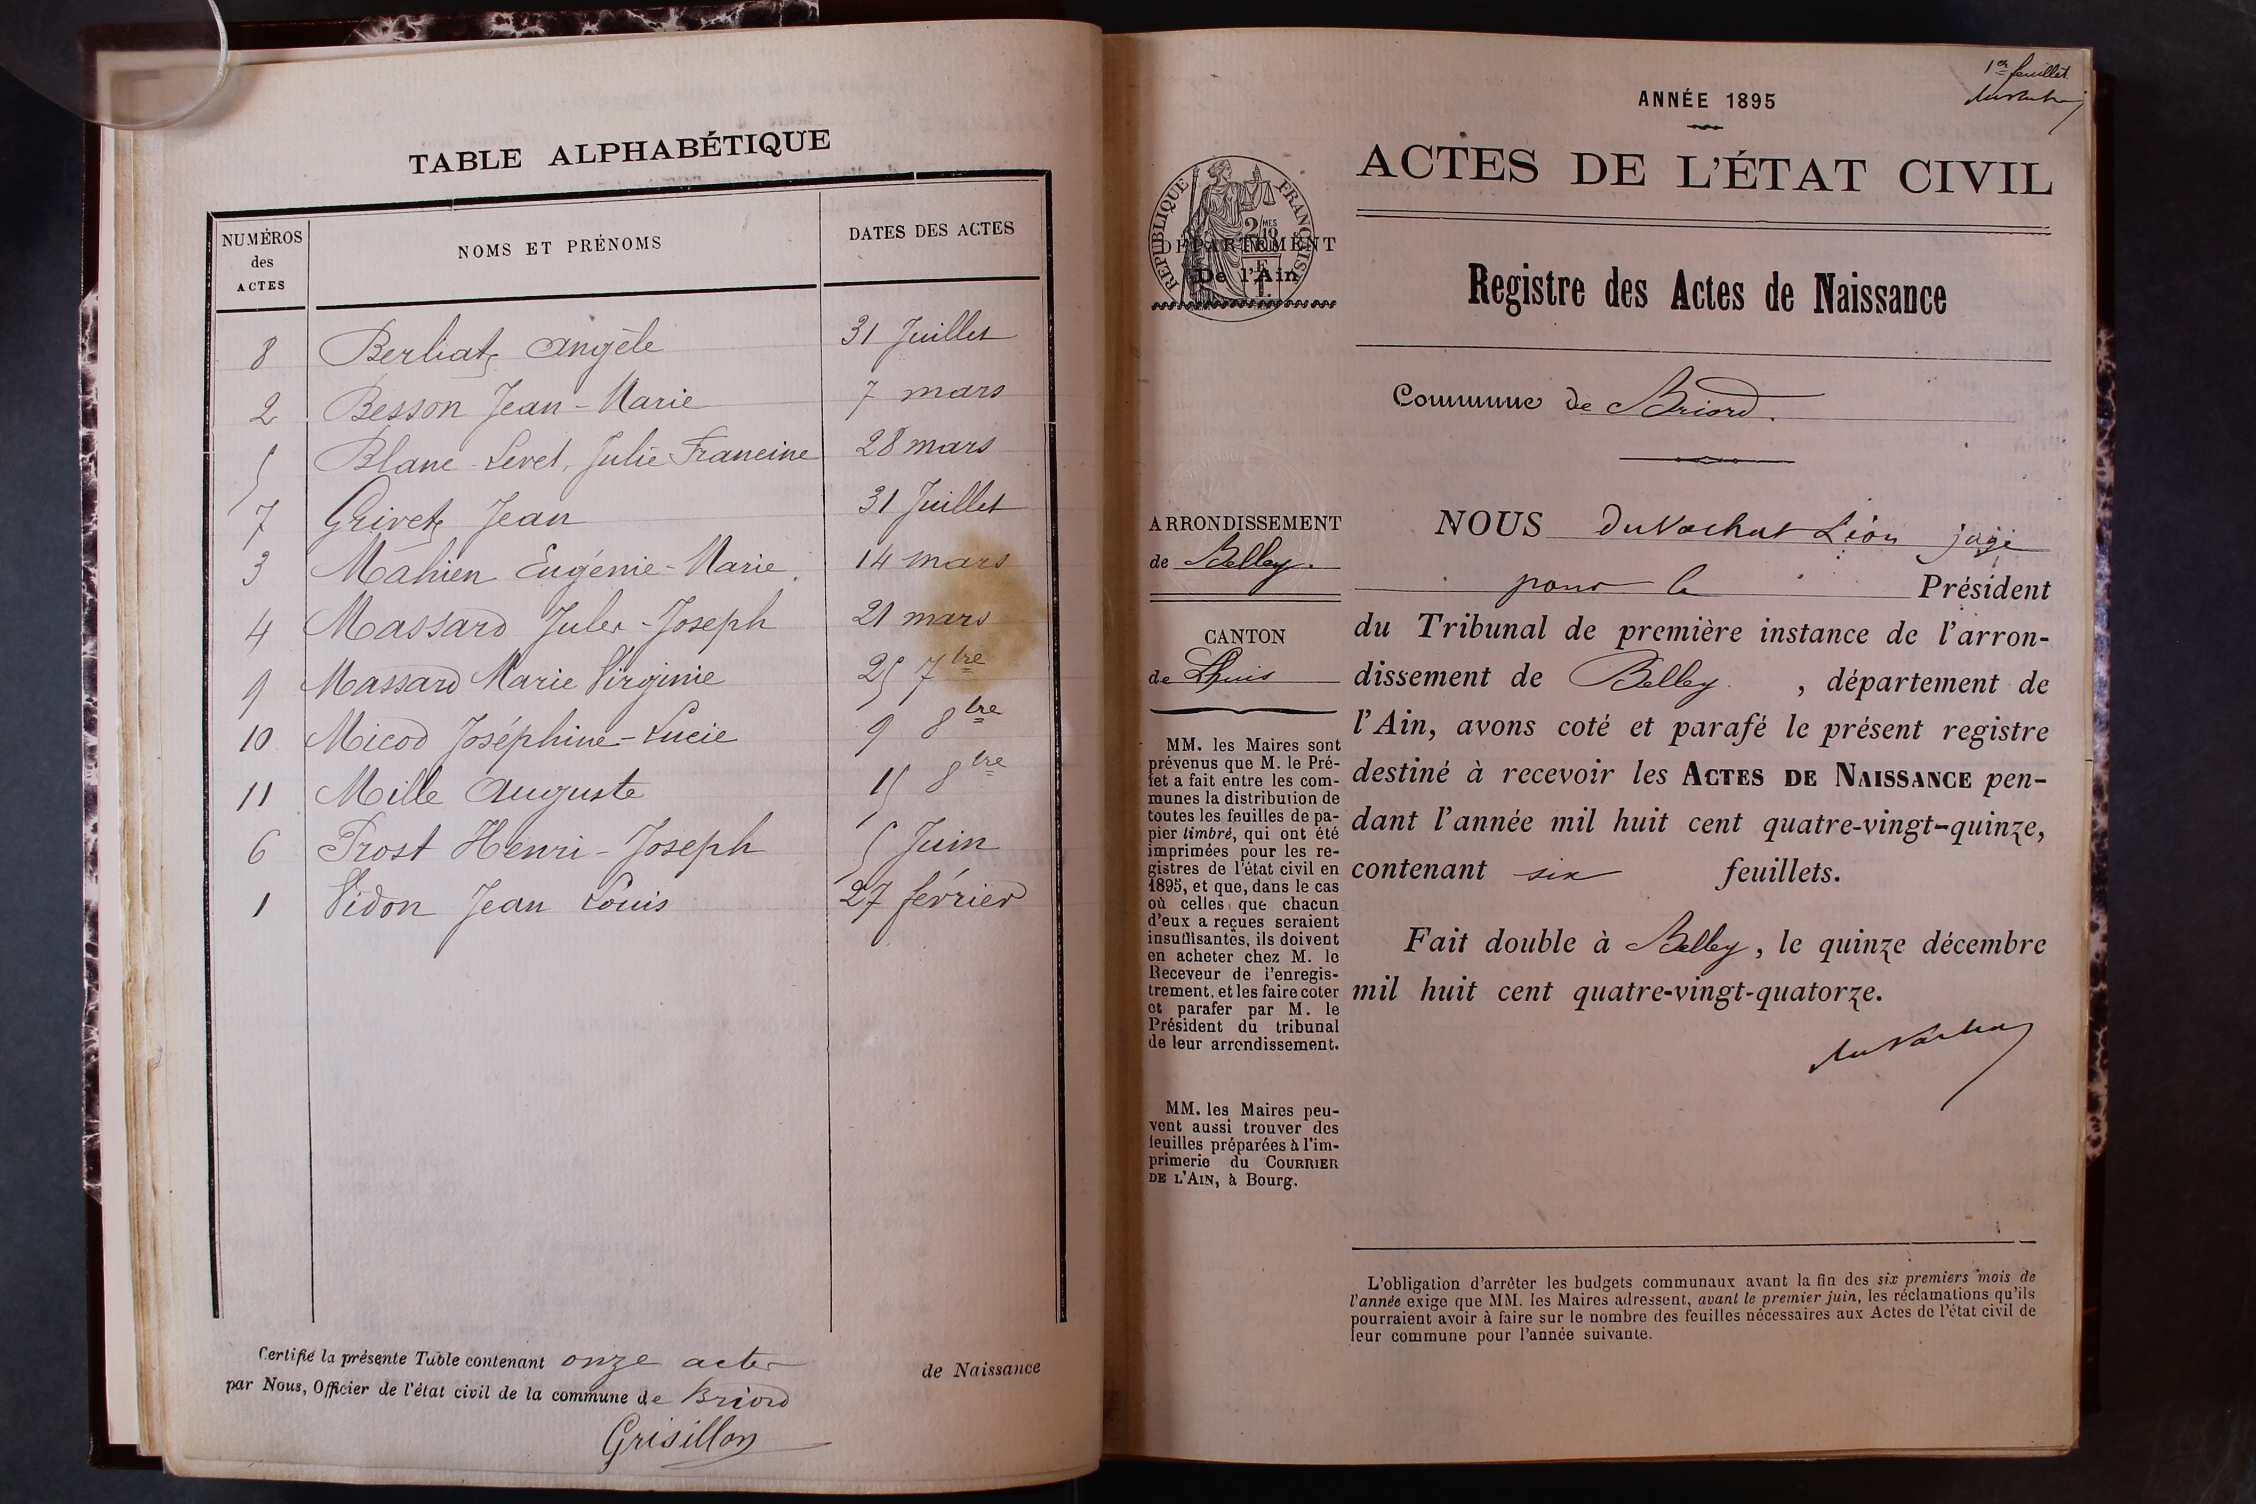 TABLE ALPHABÉTIQUE
NUMÉROS des ACTES NOMS ET PRÉNOMS DATES DES ACTES
8 Berliat Angèle 31 Juillet
2 Besson Jean-Marie 7 mars
5 Blanc-Levet, Julie Francine 28 mars
7 Grivet Jean 31 Juillet
3 Mahien Eugénie-Marie. 14 mars
4 Massard Jules-Joseph 21 mars
9 Massard Marie Virginie 25 7bre
10 Micod Joséphine-Lucie 9 8bre
11 Mille Auguste 15 8bre
6 Prost Henri-Joseph 5 Juin
1 Vidon Jean Louis 27 février
Certifié la présente Table contenant onze actes de Naissance
par Nous, Officier de l'état civil de la commune de Briord
Grisillon
1er feuillet
ANNÉE 1895
ACTES DE L'ÉTAT CIVIL
RÉPUBLIQUE FRANÇAISE
DÉPARTEMENT
De l'Ain
Registre des Actes de Naissance
Commune de Briord.
ARRONDISSEMENT
de Belley.
CANTON
de Lhuis
MM. les Maires sont
prévenus que M. le Pré-
fet a fait entre les com-
munes la distribution de
toutes les feuilles de pa-
pier timbré, qui ont été
imprimées pour les re-
gistres de l'état civil en
1895, et que, dans le cas
où celles que chacun
d'eux a reçues seraient
insuffisantes, ils doivent
en acheter chez M. le
Receveur de l'enregis-
trement, et les faire coter
et parafer par M. le
Président du tribunal
de leur arrondissement.
MM. les Maires peu-
vent aussi trouver des
feuilles préparées à l'im-
primerie du COURRIER
DE L'AIN, à Bourg.
NOUS Duvachat Léon juge
pour le Président
du Tribunal de première instance de l'arron-
dissement de Belley, département de
l'Ain, avons coté et parafé le présent registre
destiné à recevoir les ACTES DE NAISSANCE pen-
dant l'année mil huit cent quatre-vingt-quinze,
contenant six feuillets.
Fait double à Belley, le quinze décembre
mil huit cent quatre-vingt-quatorze.
L'obligation d'arrêter les budgets communaux avant la fin des six premiers mois de
l'année exige que MM. les Maires adressent, avant le premier juin, les réclamations qu'ils
pourraient avoir à faire sur le nombre des feuilles nécessaires aux Actes de l'état civil de
leur commune pour l'année suivante.